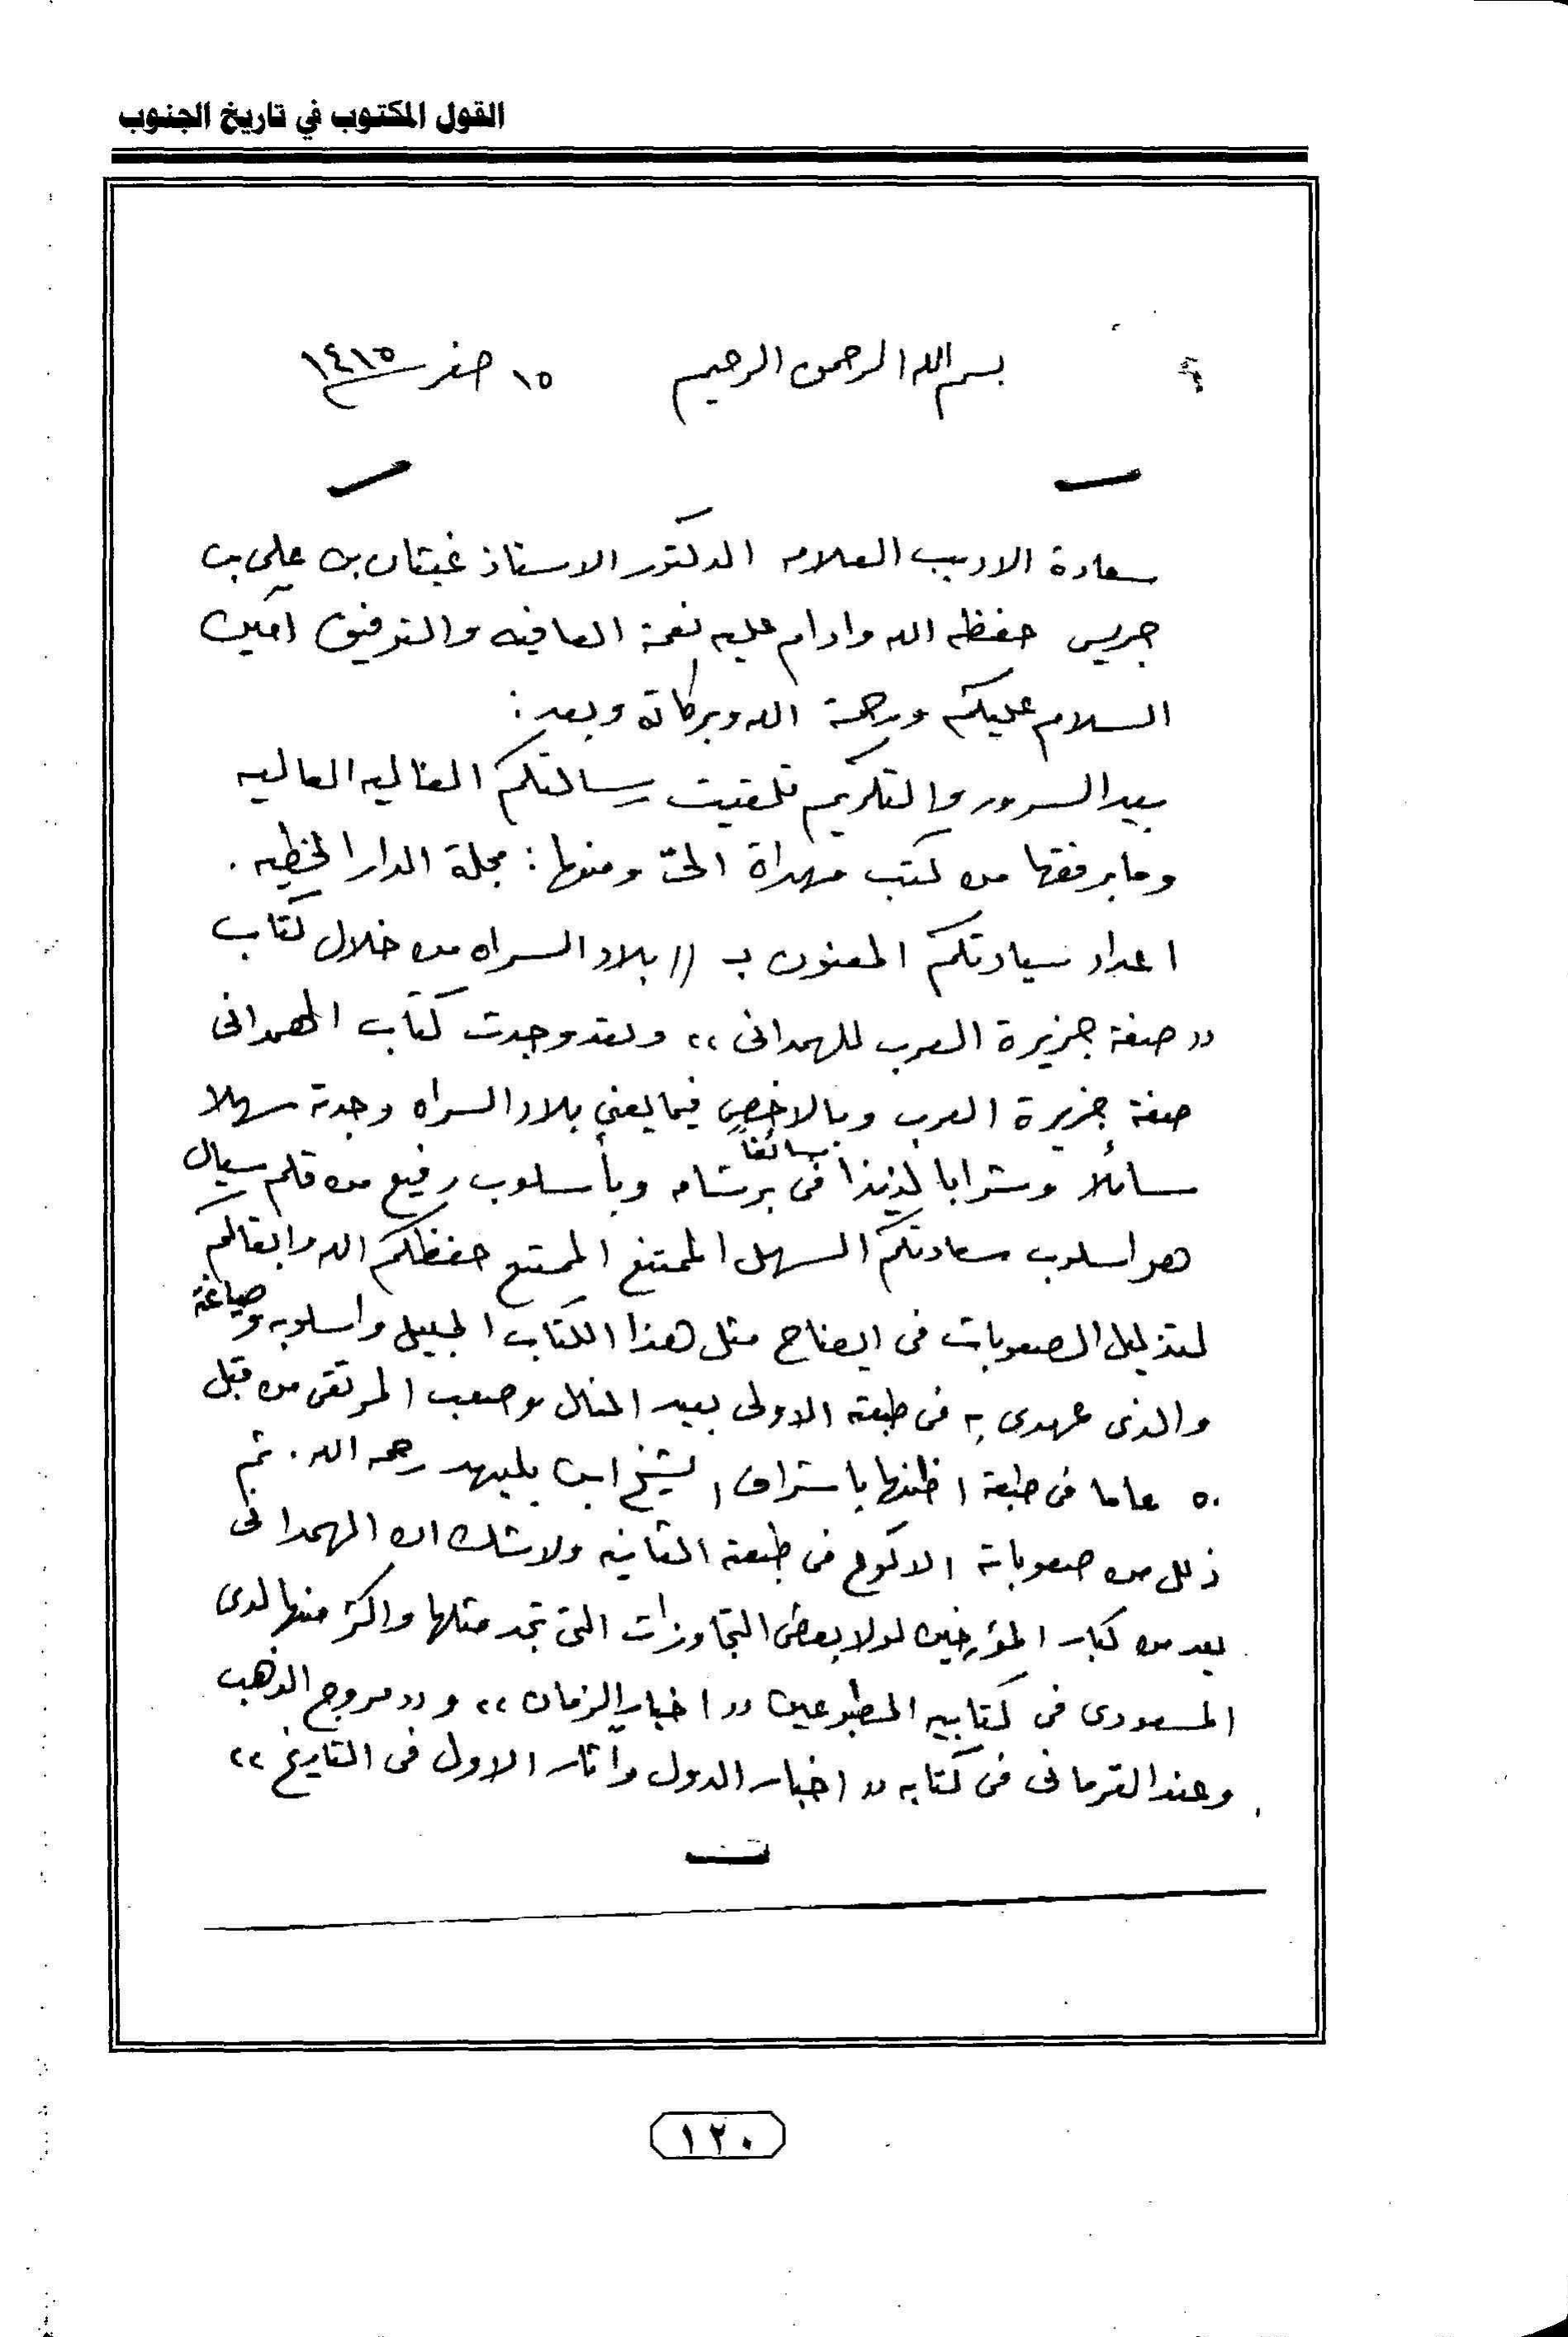 القول المكتوب في تاريخ الجنوب
بسم الله الرحمن الرحيم ١٥ صفر ١٤١٥
سعادة الاديب العلامه الدكتور الاستاذ غيثان بن علي بن
جريس حفظه الله وادام عليه نعمة العافيه والتوفيق آمين
السلام عليكم ورحمة الله وبركاته وبعد :
بيد السرور والتكريم تلقيت رسالتكم الغاليه العاليه
وما برفقها من كتب مهداة الىّ ومنها : مجلة الدار الخطيه .
اعداد سيادتكم المعنون بـ (( بلاد السراه من خلال كتاب
" صفة جزيرة العرب للهمدانى " ولقد وجدت كتاب الهمدانى
صفة جزيرة العرب وبالاخص فيما يعني بلاد السراه وجدته سهلا
سائغاً
سائلا وشرابا لذيذا فى برشامه وبأسلوب رفيع من قلم سيال
هو اسلوب سعادتكم السهل الممتنع الممتع حفظكم الله وابقاكم
لتذليل الصعوبات فى ايضاح مثل هذا الكتاب الجليل واسلوبه وصياغته
والذى عهدى به فى طبعته الاولى بعيد المنال وصعب المرتقى من قبل
٥٠ عاما فى طبعة اظنها باشراف الشيخ ابن بليهد رحمه الله . ثم
ذلل من صعوباته الاكوع فى طبعته الثانيه ولا شك ان الهمدانى
يعد من كبار المؤرخين لولا بعض التجاوزات التى تجد مثلها واكثر منها لدى
المسعودى فى كتابيه المطبوعين " اخبار الزمان " و " مروج الذهب
وعند القرمانى فى كتابه " اخبار الدول وآثار الاول فى التاريخ "
١٢٠